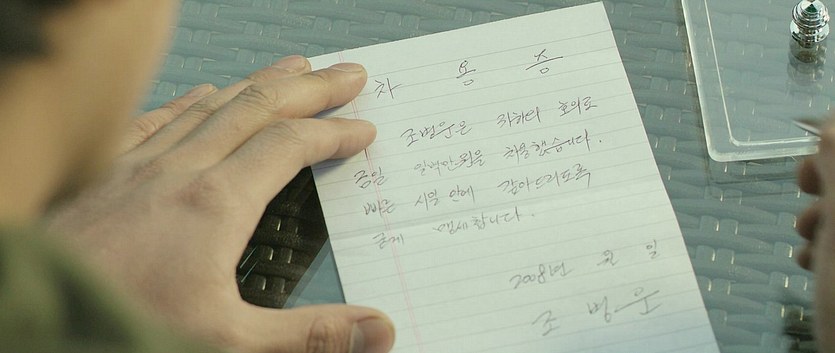 차 용 증
조병운은 귀하의 호의로
금일 일백만원을 차용했습니다.
빠른 시일 안에 갚아드리도록
굳게 맹세합니다.
2008년 월 일
조 병 운